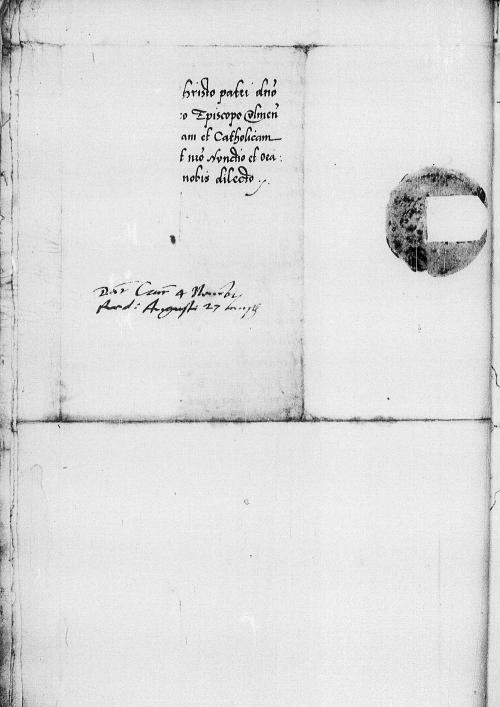 hristo patri dnō
o Episcopo Culmeñ
am et Catholicam
t nr̄o Nunctio et Ora:
nobis dilecto.
4
Augusti 27